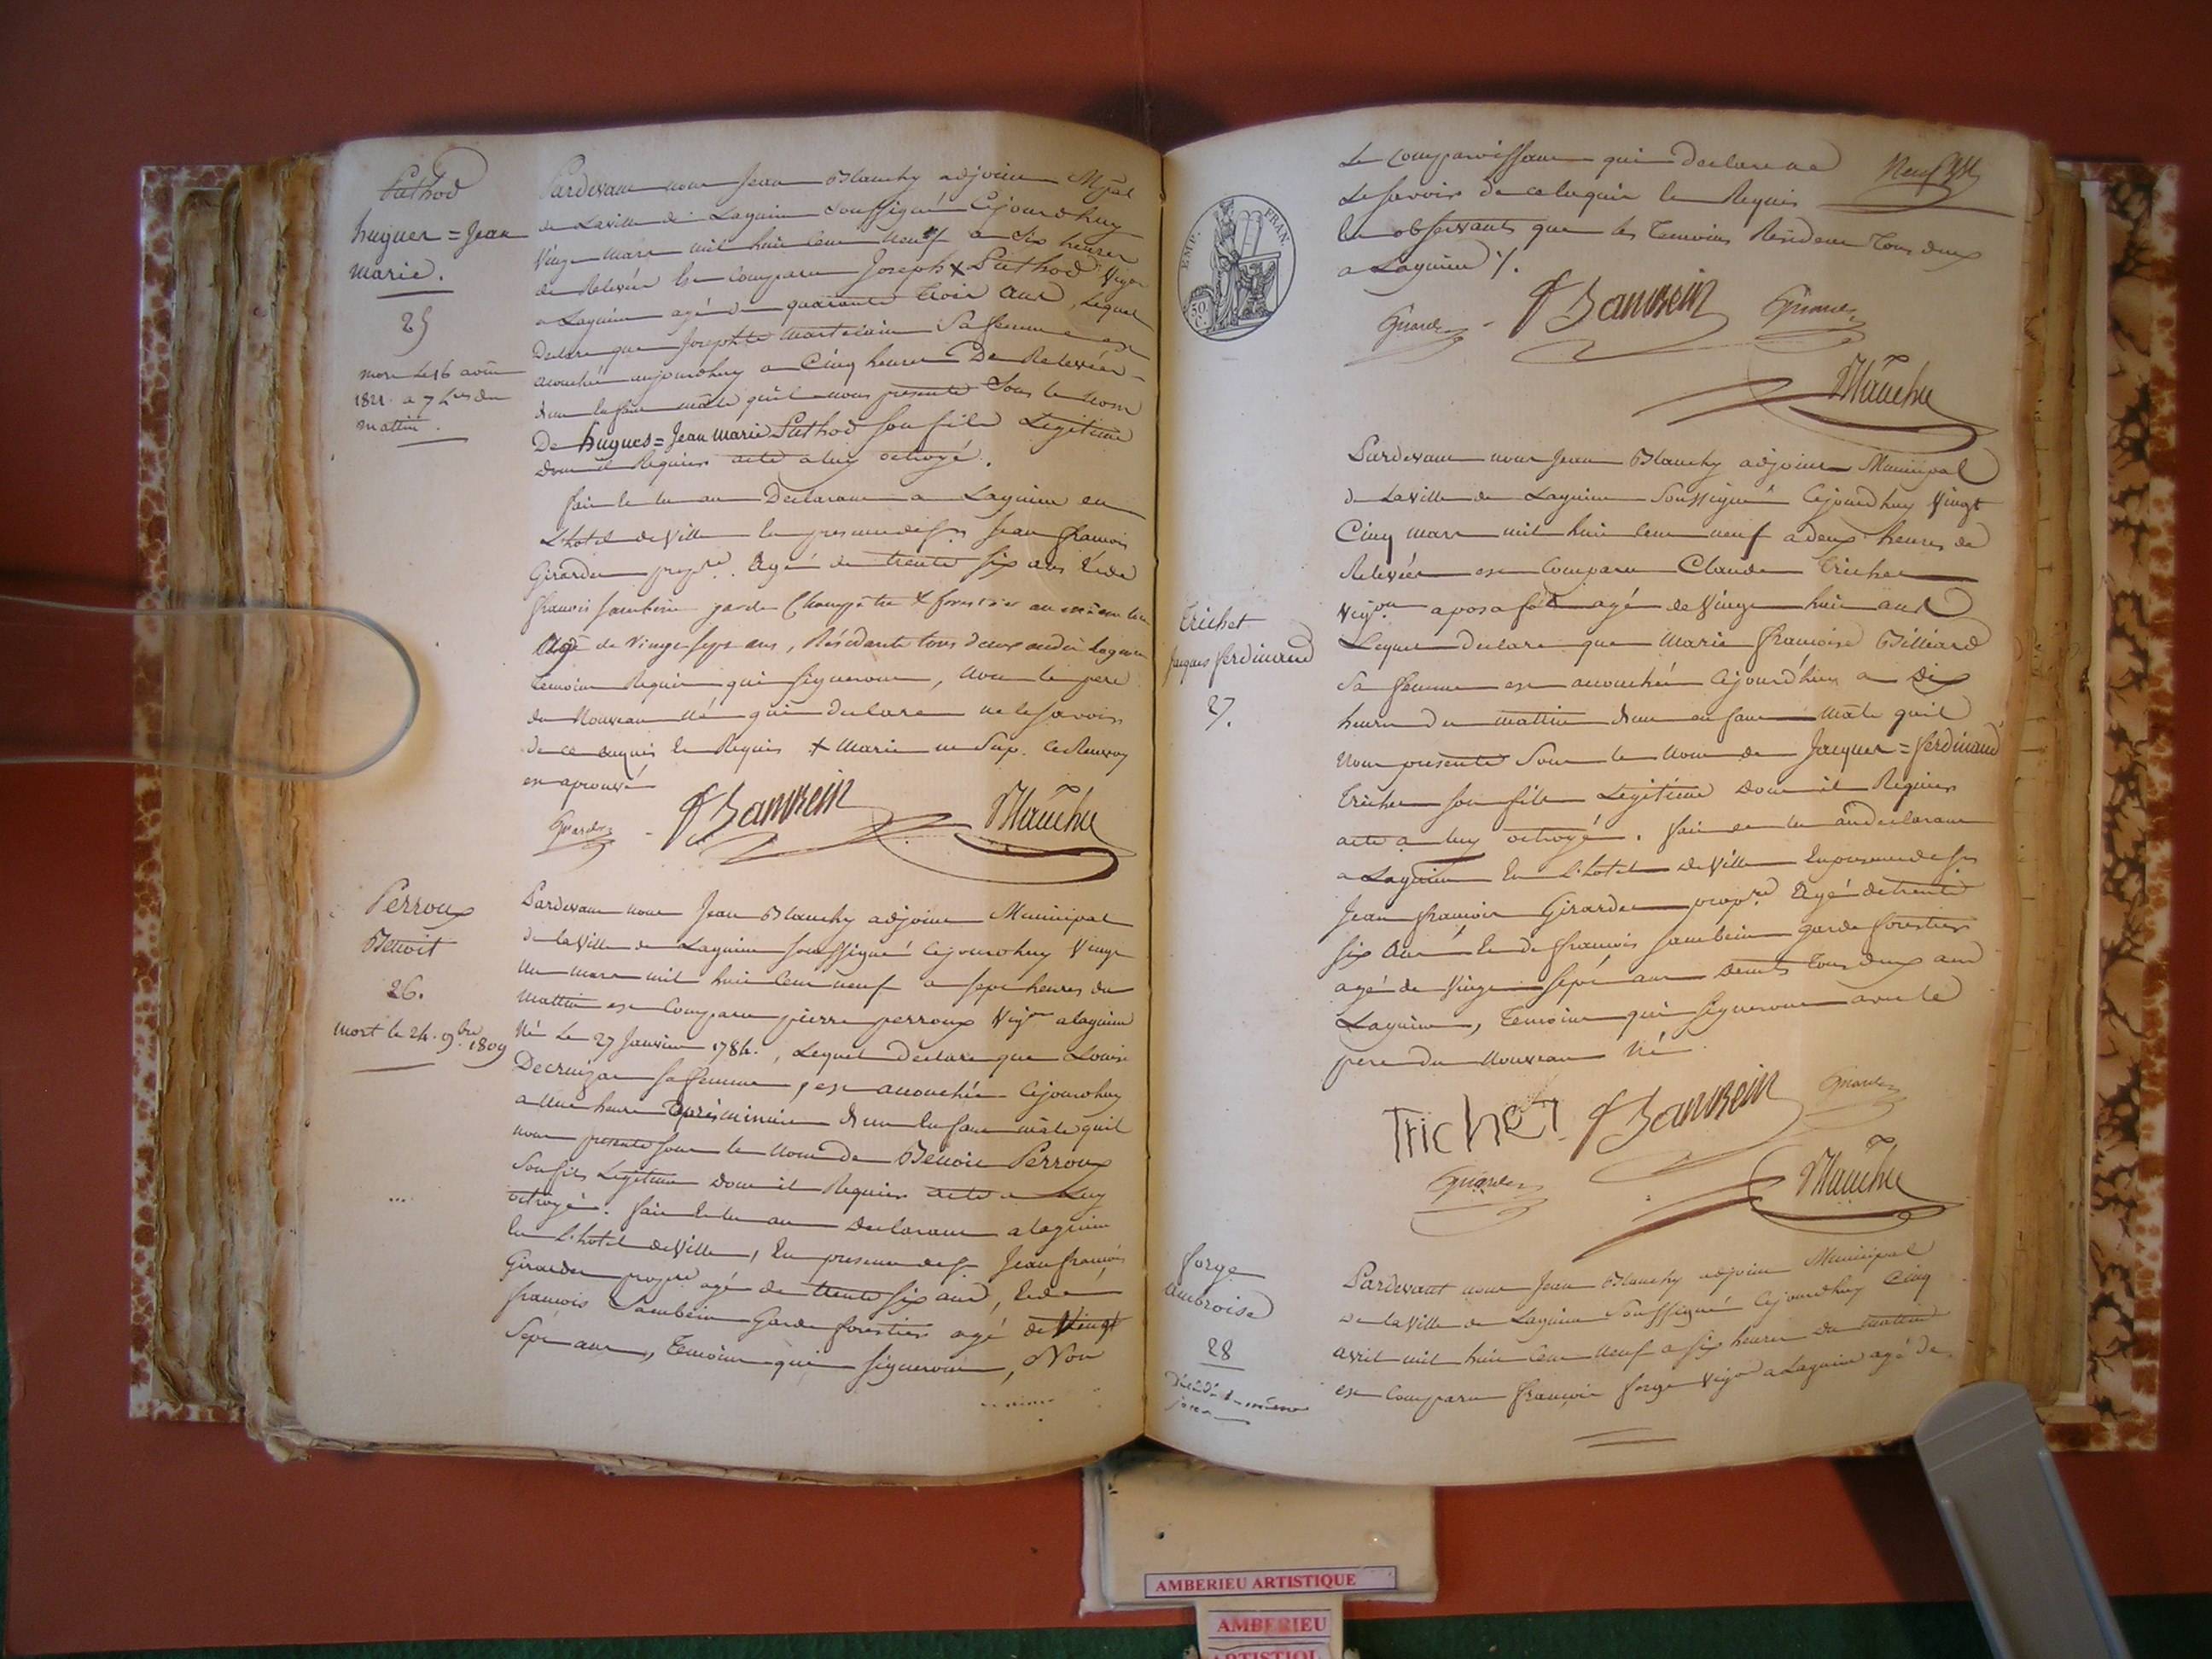 Puthod
hugues = Jean
Marie.
25
mort le 16 août
1821 a 7 h.res du
mattin.
Pardevant nous Jean Blanchy adjoint M.pal
de Laville de Lagnieu Soussigné Cejourdhuy
Vingt mars mil huit Cent Neuf a Six heures
de Relevée Est Comparu Joseph X Puthod Vig.on
a Lagnieu agé de quarante Trois ans, Lequel
Declare que Josephte Sa femme est
acouchée aujourdhuy a Cinq heures De Relevée
dun Enfant mâle quil nous presente Sous le Nom
De hugues = Jean Marie Puthod Son fils Legitime
dont il Requiert acte a luy octroyé.
fait et lu au Declarant a Lagnieu en
L'hotel de Ville En presence de S.rs Jean françois
Girardet prop.re Agé de trente Six ans et de
françois garde Champêtre & forestier au même lieu
Agé de Vingt Sept ans, Résidants tous deux audit Lagnieu
témoins Requis qui Signeront, Non le pere
du Nouveau né qui declare ne le Savoir
de ce enquis et Requis X Marie en Sup. Ce Renvoy
est aprouvé
Girardet
Blanchy
Perroux
Benoit
26.
mort le 24. 9.bre 1809
Pardevant nous Jean Blanchy adjoint Municipal
de la Ville de Lagnieu Soussigné Cejourdhuy Vingt
un mars mil huit Cent neuf a Sept heures du
Mattin est Comparu pierre perroux Vig.on a lagnieu
Né Le 27 Janvier 1784., Lequel déclare que Louise
Sa femme, est acouchée Cejourdhuy
a Une heure Après minuit dun Enfant mâle quil
nous presente Sous le Nom de Benoit Perroux
Son fils Legitime dont il Requiert acte a Luy
octroyé. fait et lu au Declarant a lagnieu
En L'hotel de Ville, En presence de S.rs Jean françois
Girardet prop.re agé de trente Six ans, Et de
françois Garde forestier agé de Vingt
Sept ans, Temoins qui Signeront, Non
Le Comparoissant qui declare ne
Le Savoir de ce Enquis et Requis
En observant que les Temoins Résident Tous deux
a Lagnieu ./.
EMP. FRAN.
50 C.
Girardet
Girardet
Blanchy
Trichet
Jacques ferdinand
27.
Pardevant nous Jean Blanchy adjoint Municipal
de La Ville de Lagnieu Soussigné Cejourdhuy Vingt
Cinq mars mil huit Cent neuf a deux heures de
Relevée est Comparu Claude Trichet
Vig.on a posafol agé de Vingt huit ans
Lequel declare que Marie françoise Billiard
Sa femme est acouchée Cejourdhuy a Dix
heures du mattin dun enfant Mâle quil
Nous presente Sous le Nom de Jacques = ferdinand
Trichet Son fils Legitime dont il Requiert
acte a luy octroyé. fait et lu au declarant
a Lagnieu En L'hotel de Ville En presence de S.rs
Jean françois Girardet prop.re Agé de trente
Six Ans Et de françois garde forestier
agé de Vingt Sept ans demts Tous deux aud
Lagnieu, Temoins qui Signeront avec le
pere du Nouveau Né.
Trichet
Girardet
Girardet
Blanchy
forge
Ambroise
28
Décédé le même
jour
Pardevant nous Jean Blanchy adjoint Municipal
de la Ville de Lagnieu Soussigné Cejourdhuy Cinq
avril mil huit Cent Neuf a Six heures du mattin
est Comparu françois forge Vig.on a Lagnieu agé de
AMBERIEU ARTISTIQUE
AMBERIEU